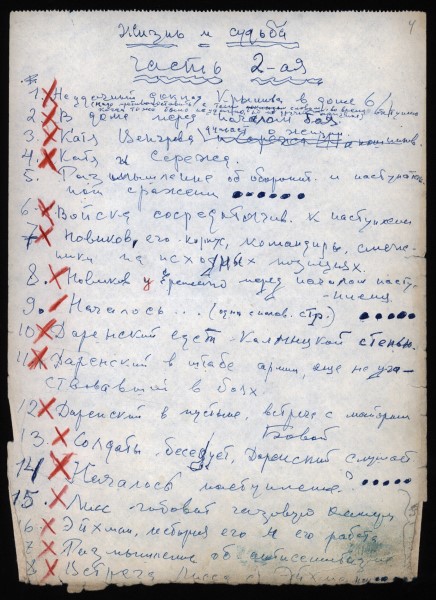 4
Жизнь и судьба
часть 2-ая
1. Неудачный доклад Крымова в доме 6/1
2. В доме перед началом боя
думает о жизни
3. Катя Венгрова
4. Катя и Сережа.
5. Размышление об оборонит. и наступатель-
ном сражении
6. Войска сосредоточив. к наступлению
7. Новиков, его корпус, командиры, смеж-
ники на исходных позициях.
8. Новиков у Еременко перед началом насту-
пления
9. Началось... (одна стр.)
10. Даренский едет Калмыцкой степью.
11. Даренский в штабе армии, еще не уча-
ствовавшей в боях
12. Даренский в пустыне, встреча с майором
Бовой
13. Солдаты беседует, Даренский слушает
14. Началось наступление.
15. Лисс готовит газовую камеру
16. Эйхман, история его и его работа
7. Размышление об антисемитизме
8. Встреча Лисса с Эйхманом